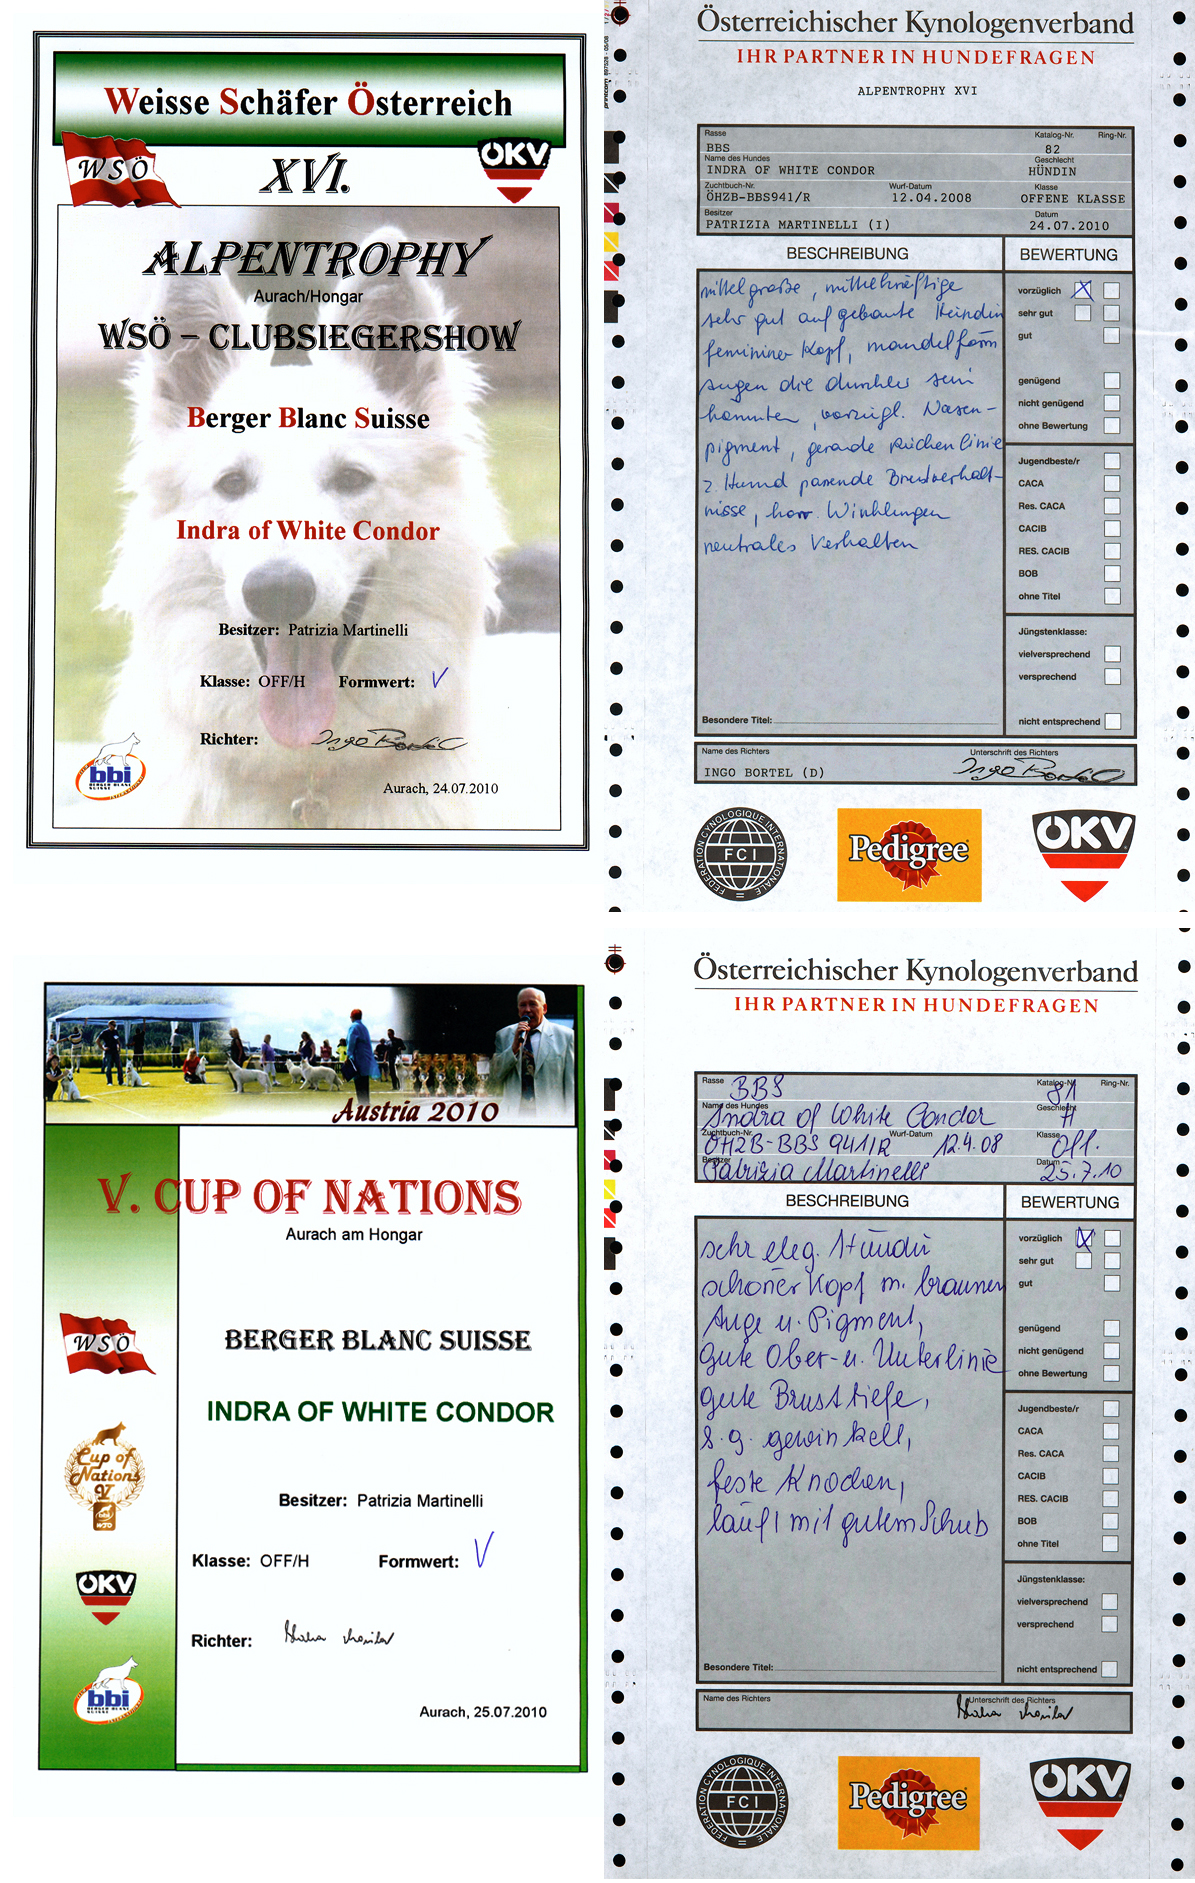 Weisse Schäfer Österreich
WSÖ
XVI.
ÖKV
ALPENTROPHY
Aurach/Hongar
WSÖ – CLUBSIEGERSHOW
Berger Blanc Suisse
Indra of White Condor
Besitzer: Patrizia Martinelli
Klasse: OFF/H Formwert: V
Richter: Ingo Bortel
bbi
BERGER BLANC SUISSE INTERNATIONAL
Aurach, 24.07.2010
Österreichischer Kynologenverband
IHR PARTNER IN HUNDEFRAGEN
ALPENTROPHY XVI
Rasse Katalog-Nr. Ring-Nr.
BBS 82
Name des Hundes Geschlecht
INDRA OF WHITE CONDOR HÜNDIN
Zuchtbuch-Nr. Wurf-Datum Klasse
ÖHZB-BBS941/R 12.04.2008 OFFENE KLASSE
Besitzer Datum
PATRIZIA MARTINELLI (I) 24.07.2010
BESCHREIBUNG
mittelgroße, mittelkräftige
sehr gut aufgebaute Hündin
femininer Kopf, mandelförm
Augen die dunkler sein
könnten, vorzügl. Nasen-
pigment, gerade Rückenlinie
z. Hund passende Brustverhält-
nisse, harm. Winklungen
neutrales Verhalten
Besondere Titel:
BEWERTUNG
vorzüglich X
sehr gut
gut
genügend
nicht genügend
ohne Bewertung
Jugendbeste/r
CACA
Res. CACA
CACIB
RES. CACIB
BOB
ohne Titel
Jüngstenklasse:
vielversprechend
versprechend
nicht entsprechend
Name des Richters Unterschrift des Richters
INGO BORTEL (D) Ingo Bortel
FEDERATION CYNOLOGIQUE INTERNATIONALE
FCI
Pedigree
ÖKV
Austria 2010
V. CUP OF NATIONS
Aurach am Hongar
WSÖ
BERGER BLANC SUISSE
INDRA OF WHITE CONDOR
Cup of
Nations
V
bbi
WSÖ
Besitzer: Patrizia Martinelli
Klasse: OFF/H Formwert: V
ÖKV
Richter:
bbi
BERGER BLANC SUISSE INTERNATIONAL
Aurach, 25.07.2010
Österreichischer Kynologenverband
IHR PARTNER IN HUNDEFRAGEN
Rasse BBS Katalog-Nr. 81 Ring-Nr.
Name des Hundes Indra of White Condor Geschlecht H
Zuchtbuch-Nr. ÖHZB-BBS 941/R Wurf-Datum 12.4.08 Klasse Off.
Besitzer Patrizia Martinelli Datum 25.7.10
BESCHREIBUNG
sehr eleg. Hündin
schöner Kopf m. braunem
Auge u. Pigment,
gute Ober- u. Unterlinie
gute Brusttiefe,
s. g. gewinkelt,
feste Knochen,
läuft mit gutem Schub
Besondere Titel:
BEWERTUNG
vorzüglich X
sehr gut
gut
genügend
nicht genügend
ohne Bewertung
Jugendbeste/r
CACA
Res. CACA
CACIB
RES. CACIB
BOB
ohne Titel
Jüngstenklasse:
vielversprechend
versprechend
nicht entsprechend
Name des Richters Unterschrift des Richters
FEDERATION CYNOLOGIQUE INTERNATIONALE
FCI
Pedigree
ÖKV